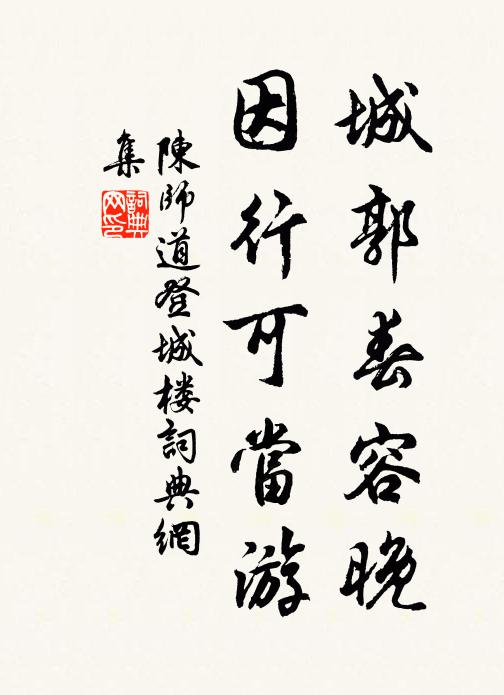 城郭春容晚
因行可當游
陳師道登城楼詞典網
集
詞典
网印